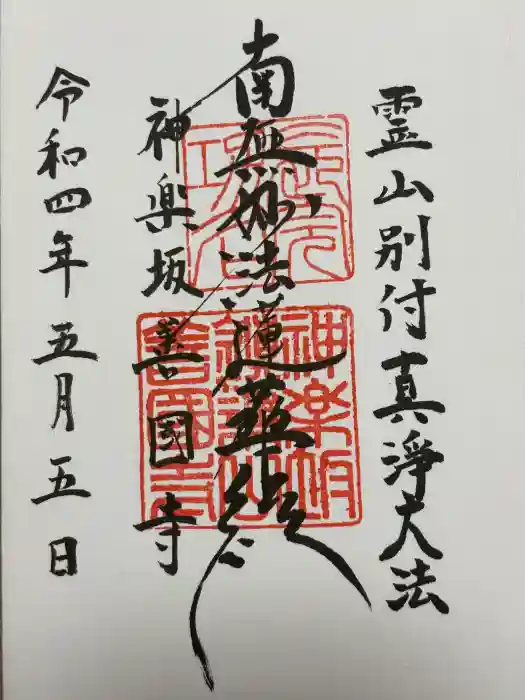 霊山別付真浄大法
南無妙法蓮華経
神楽坂善國寺
令和四年五月五日